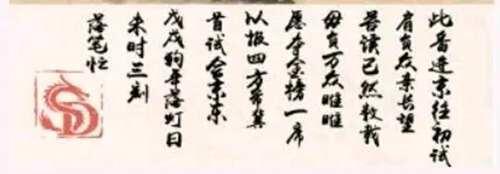 此番进京往初试
肩负众亲长望
苦读已然数载
毋负万众睢睢
愿夺金榜一席
以报四方希冀
首试合京东
戊戌狗年落灯日
未时三刻
落笔忙